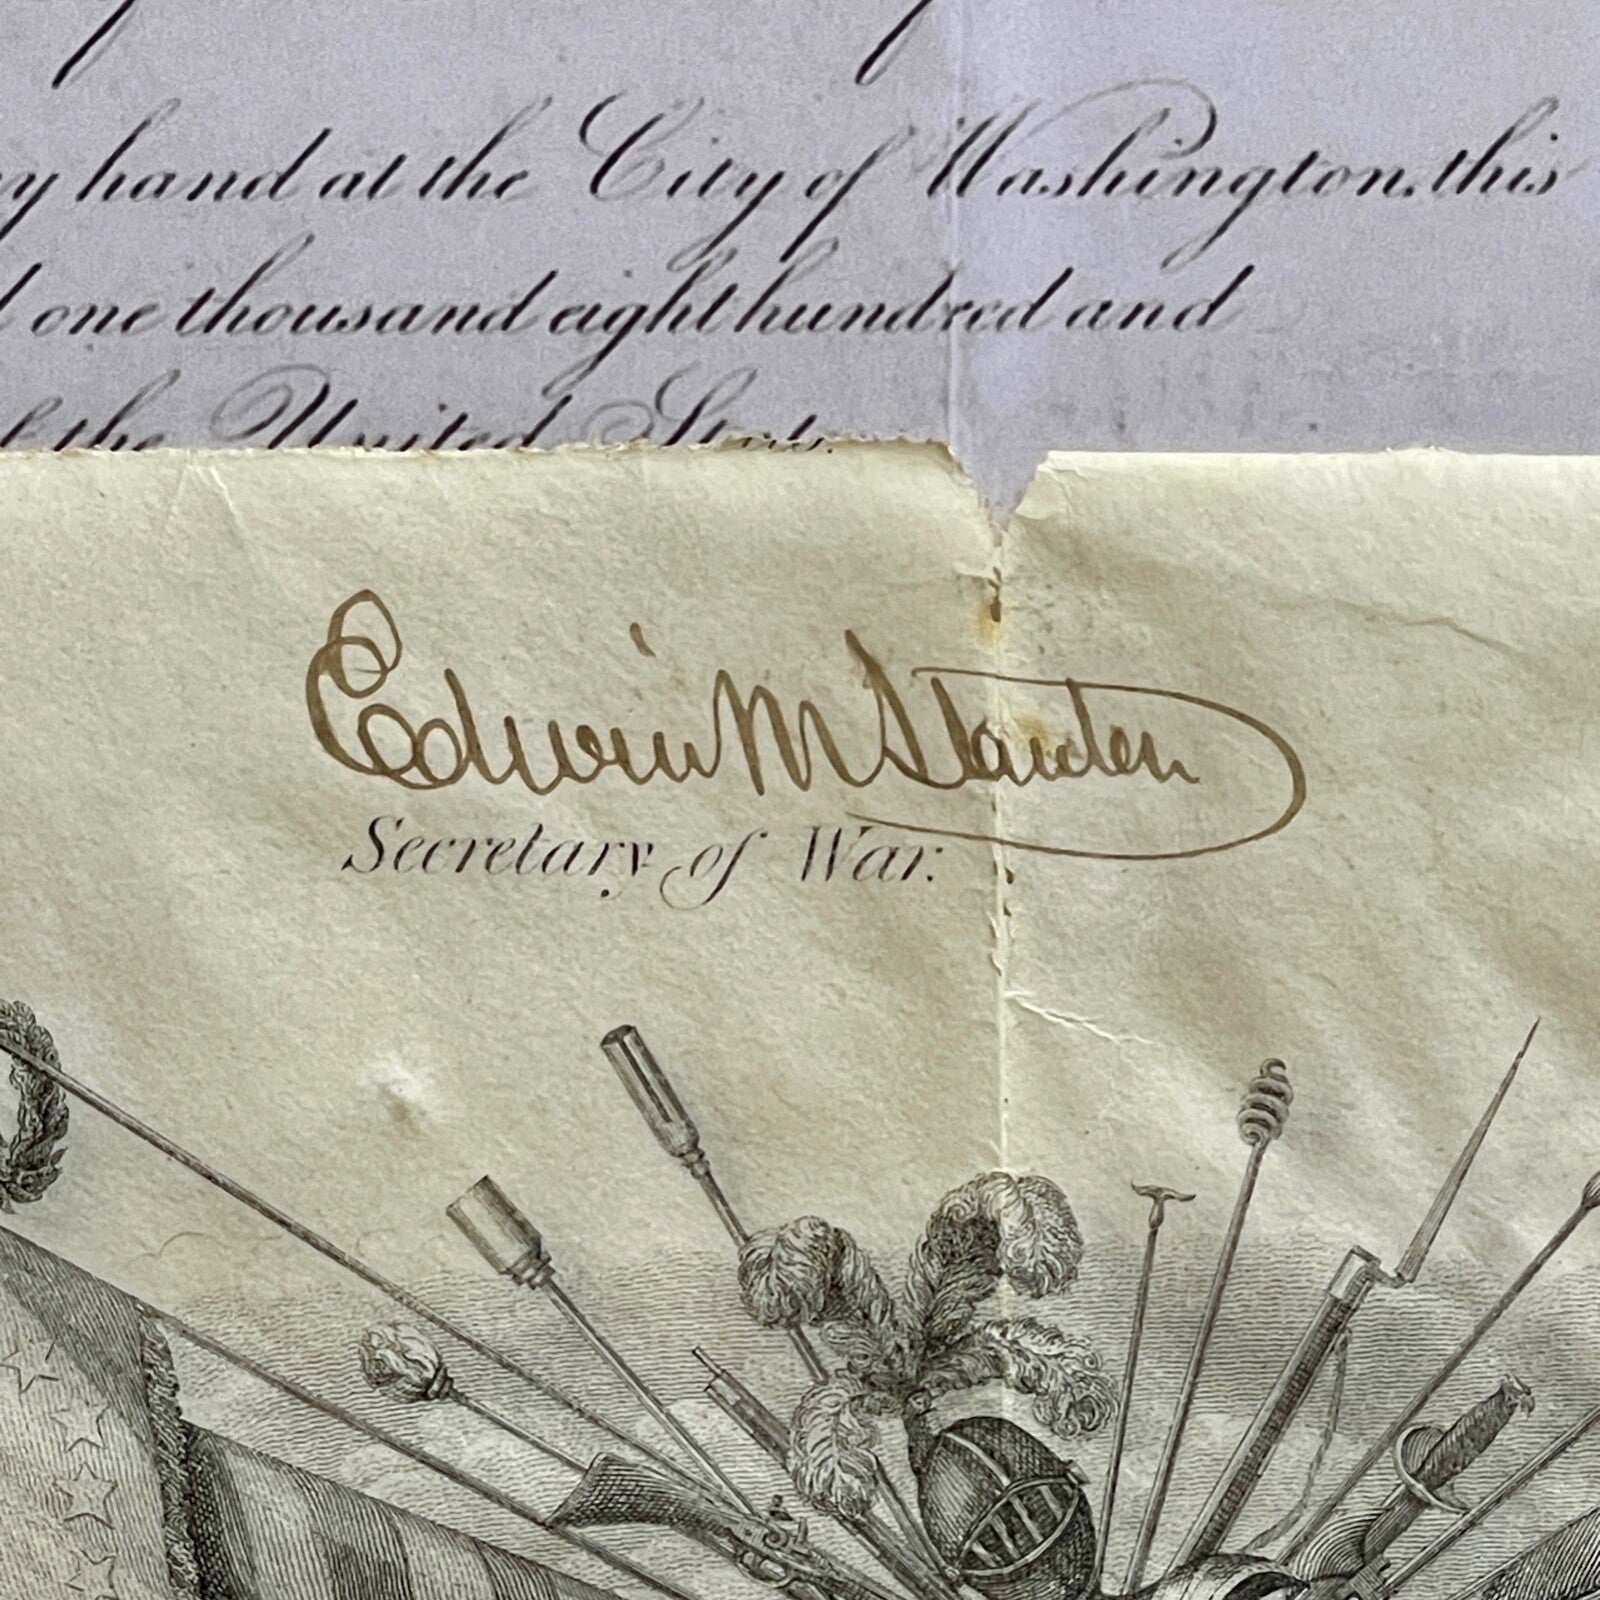 my hand at the City of Washington, this
one thousand eight hundred and
of the United States.
Edwin M Stanton
Secretary of War.